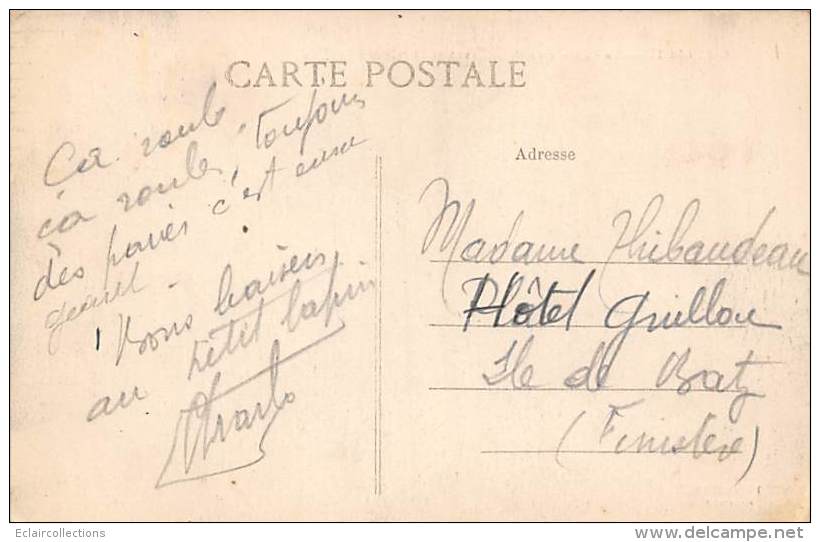 CARTE POSTALE
Ça roule
ça roule, toujours
des pavés c'est
Bons baisers
au petit lapin
Adresse
Madame Thibaudeau
Hôtel Guillou
Ile de Batz
(Finistère)
Eclaircollections
www.delcampe.net